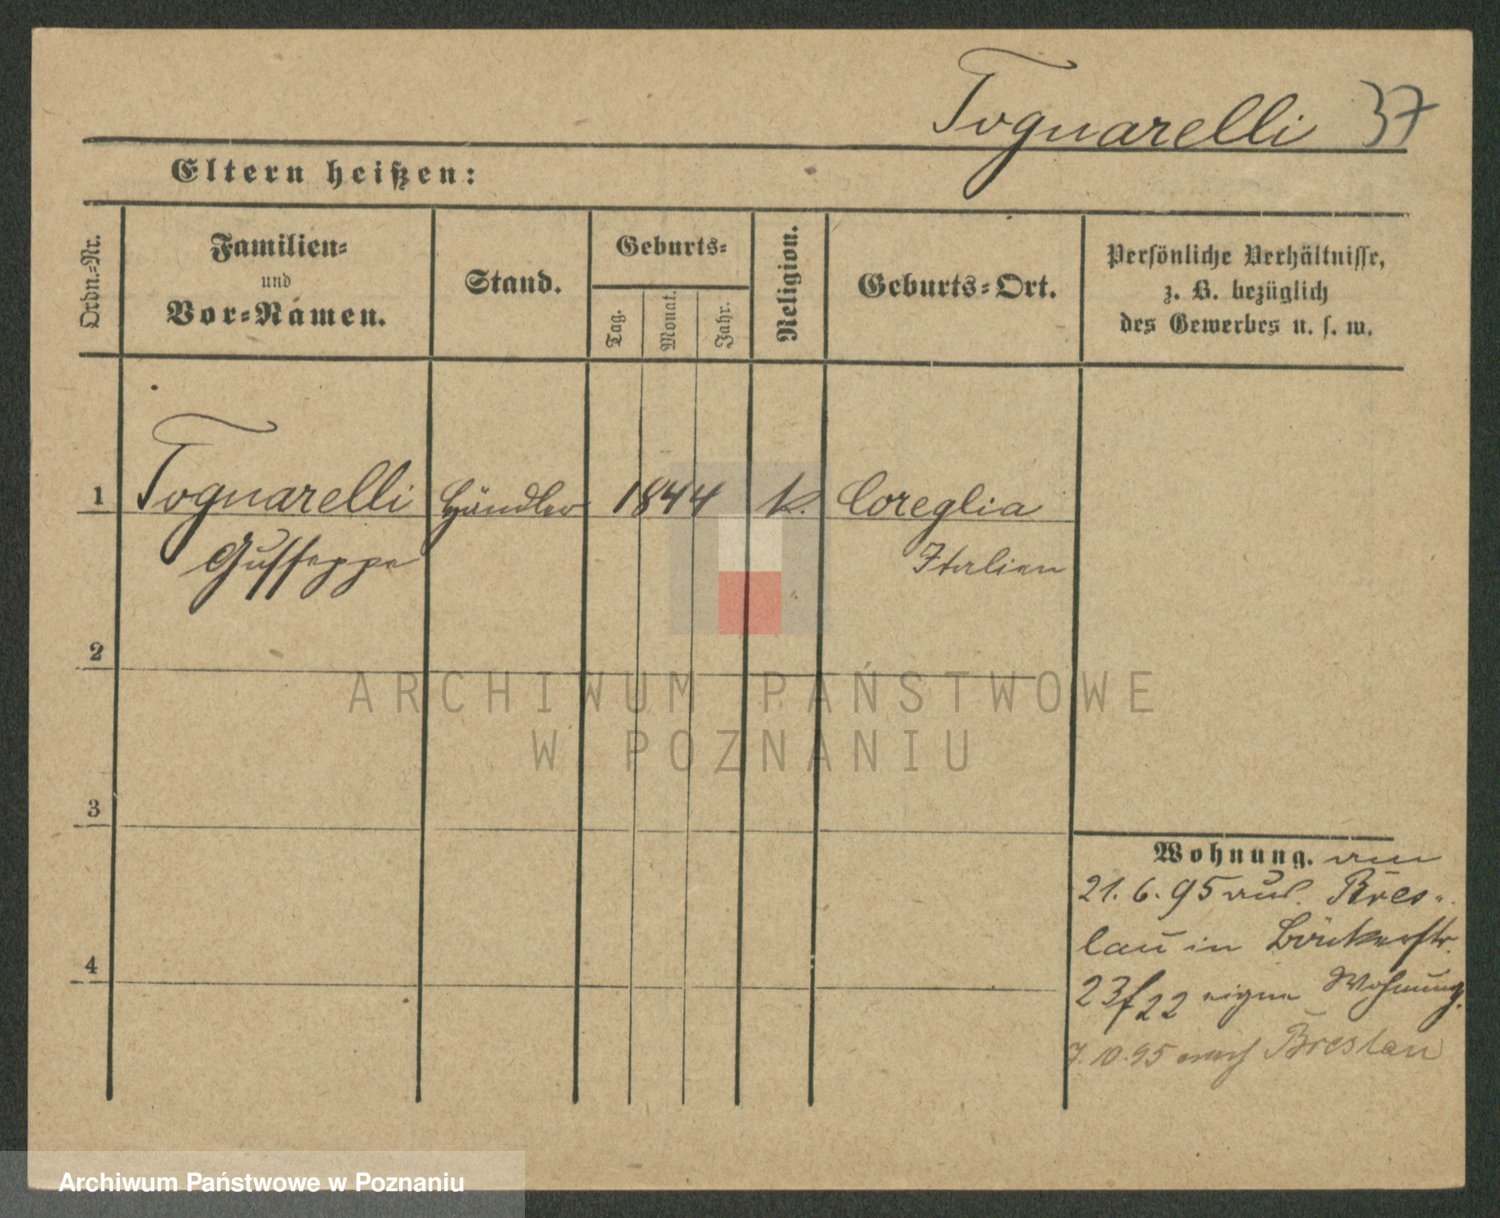 Tognarelli 37
Eltern heißen:
Ordn.=Nr.
Familien=
und
Vor=Namen.
Stand.
Geburts=
Tag.
Monat.
Jahr.
Religion.
Geburts=Ort.
Persönliche Verhältnisse,
z. B. bezüglich
des Gewerbes u. s. w.
1 Tognarelli Händler 1844 k. Coreglia
Guseppe Italien
2
3
4
Wohnung. am
21. 6. 95 aus. Bres-
lau in Bäckerstr.
23/22 eigne Wohnung.
7. 10. 95 nach Breslau
ARCHIWUM PAŃSTWOWE
W POZNANIU
Archiwum Państwowe w Poznaniu